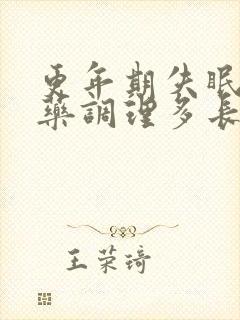 更年期失眠
藥調理多長
王荣琦